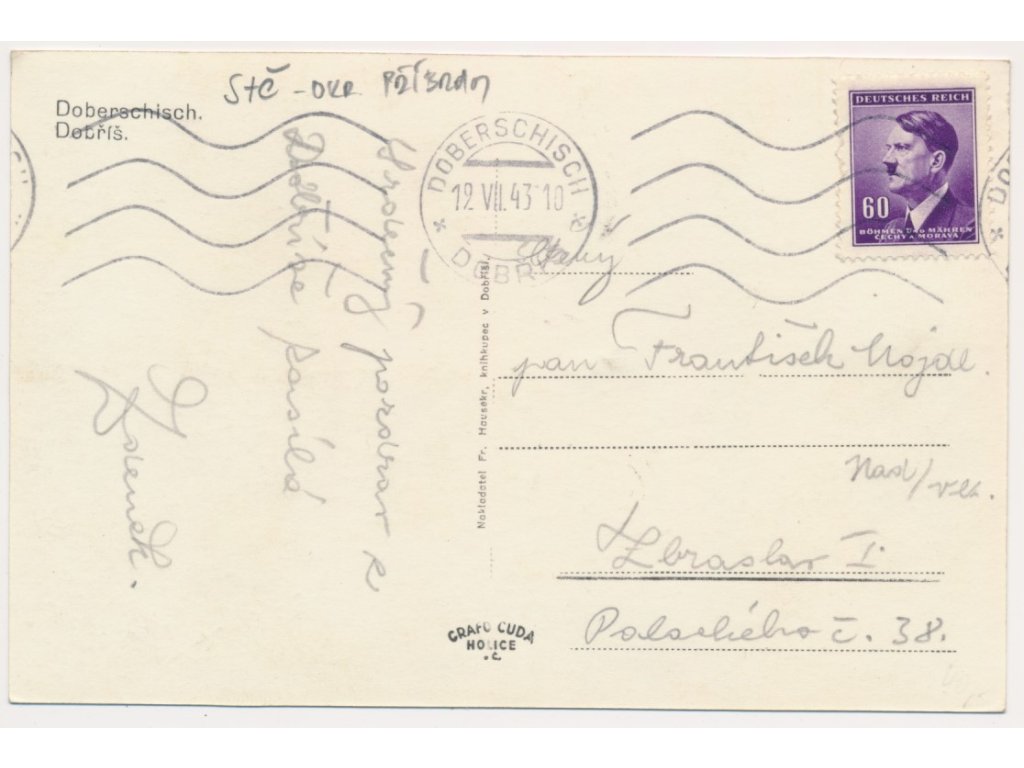 StČ - OKR PŘÍBRAM
Doberschisch.
Dobříš.
DOBERSCHISCH
12 VII. 43 10
DOBŘ
DEUTSCHES REICH
60
BÖHMEN UND MÄHREN
ČECHY A MORAVA
Srdečný pozdrav z
Dobříše zasílá
Zdeněk.
Nakladatel Fr. Hausekr, knihkupec v Dobříši.
pan František Nojdl.
Nad/vlt.
Zbraslav I.
Palackého č. 38.
GRAFO ČUDA
HOLICE
.č